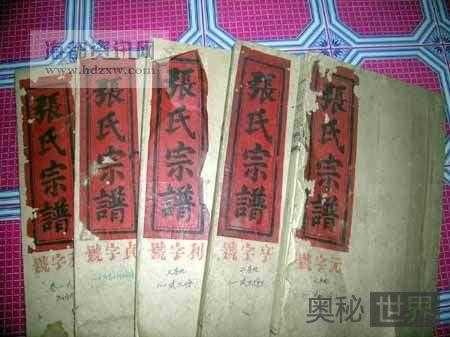 海都资讯网
www.hdzxw.com
張氏宗譜
元字號
張氏宗譜
亨字號
張氏宗譜
利字號
張氏宗譜
貞字號
張氏宗譜
字號
奥秘世界